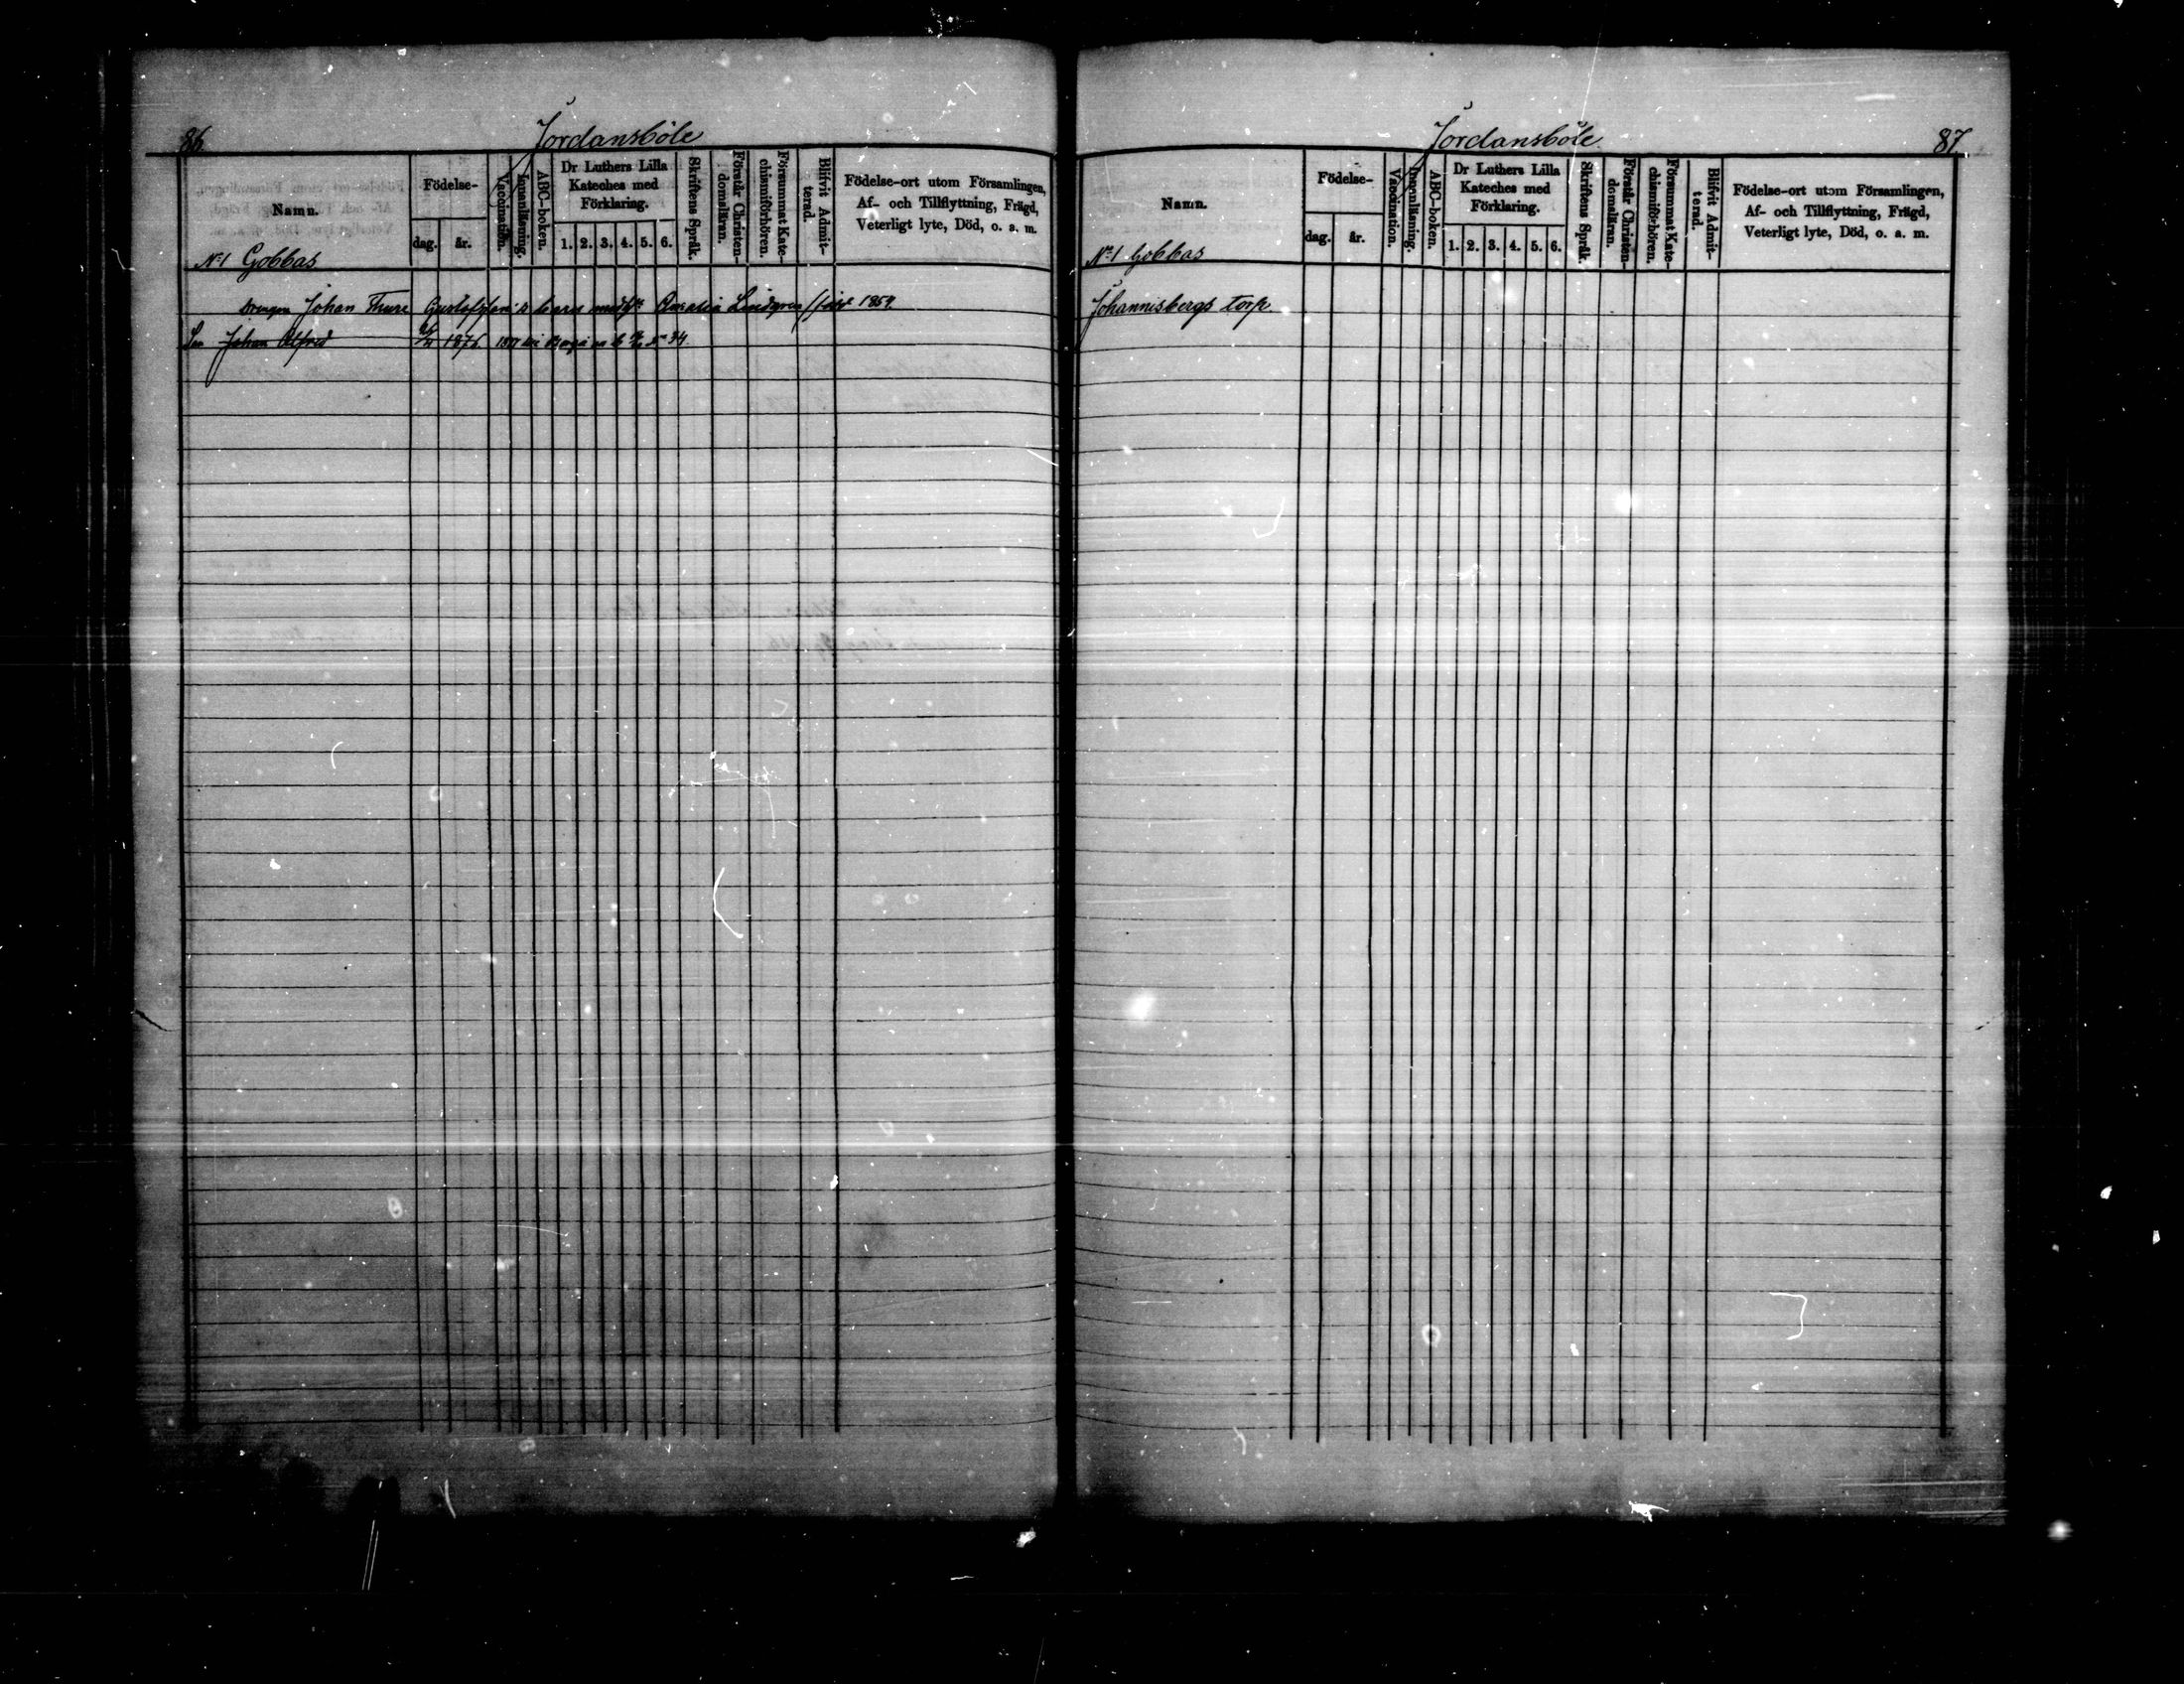 86
Jordansböle
Namn.
Födelse-
dag.
år.
Vaccination.
Innanläsning.
ABC-boken.
Dr Luthers Lilla
Kateches med
Förklaring.
1. 2. 3. 4. 5. 6.
Skriftens Språk.
Förstår Christen-
domsläran.
Försummat Kate-
chismiförhören.
Blifvit Admit-
terad.
Födelse-ort utom Församlingen,
Af- och Tillflyttning, Frägd,
Veterligt lyte, Död, o. a. m.
No 1 Gobbas
Drengen Johan Thure barn med Amalia Lindgren 1854
Son Johan Alfred 1876
Jordansböle
87
Namn.
Födelse-
dag.
år.
Vaccination.
Innanläsning.
ABC-boken.
Dr Luthers Lilla
Kateches med
Förklaring.
1. 2. 3. 4. 5. 6.
Skriftens Språk.
Förstår Christen-
domsläran.
Försummat Kate-
chismiförhören.
Blifvit Admit-
terad.
Födelse-ort utom Församlingen,
Af- och Tillflyttning, Frägd,
Veterligt lyte, Död, o. a. m.
No 1 Gobbas
Johannisbergs torp.